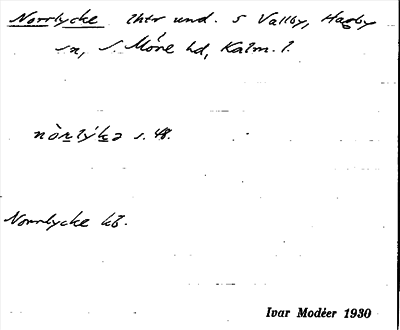 Norrlycke lhtr und. S Vallby, Hagby
sn, S. Möre hd, Kalm. l.
s. 48.
Norrlycke
Ivar Modéer 1930